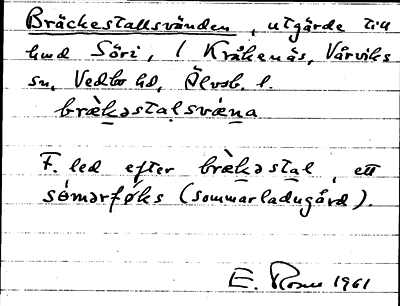 Bräckestallsvänden, utgärde till
hmd Söri, 1 Kråkenäs, Vårviks
sn, Vedbo hd, Älvsb. l.
brækəstalsvæna
F. led efter brækəstal, ett
sømarføks (sommarladugård).
E. 1961